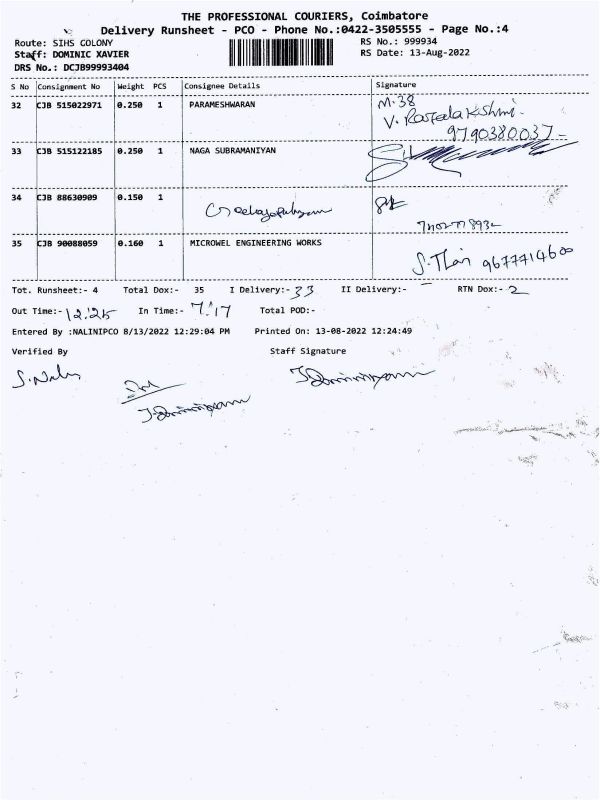 THE PROFESSIONAL COURIERS, Coimbatore
Delivery Runsheet - PCO - Phone No.:0422-3505555 - Page No.:4
Route: SIHS COLONY
RS No.: 999934
Staff: DOMINIC XAVIER
RS Date: 13-Aug-2022
DRS No.: DCJB99993404
S No Consignment No Weight PCS Consignee Details Signature
32 CJB 515022971 0.250 1 PARAMESHWARAN M-38
V.
9790380037
33 CJB 515122185 0.250 1 NAGA SUBRAMANIYAN
34 CJB 88630909 0.150 1
35 CJB 90088059 0.160 1 MICROWEL ENGINEERING WORKS
9677714600
Tot. Runsheet:- 4 Total Dox:- 35 I Delivery:- 33 II Delivery:- RTN Dox:- 2
Out Time:- 12:25 In Time:- 7:17 Total POD:-
Entered By :NALINIPCO 8/13/2022 12:29:04 PM Printed On: 13-08-2022 12:24:49
Verified By Staff Signature